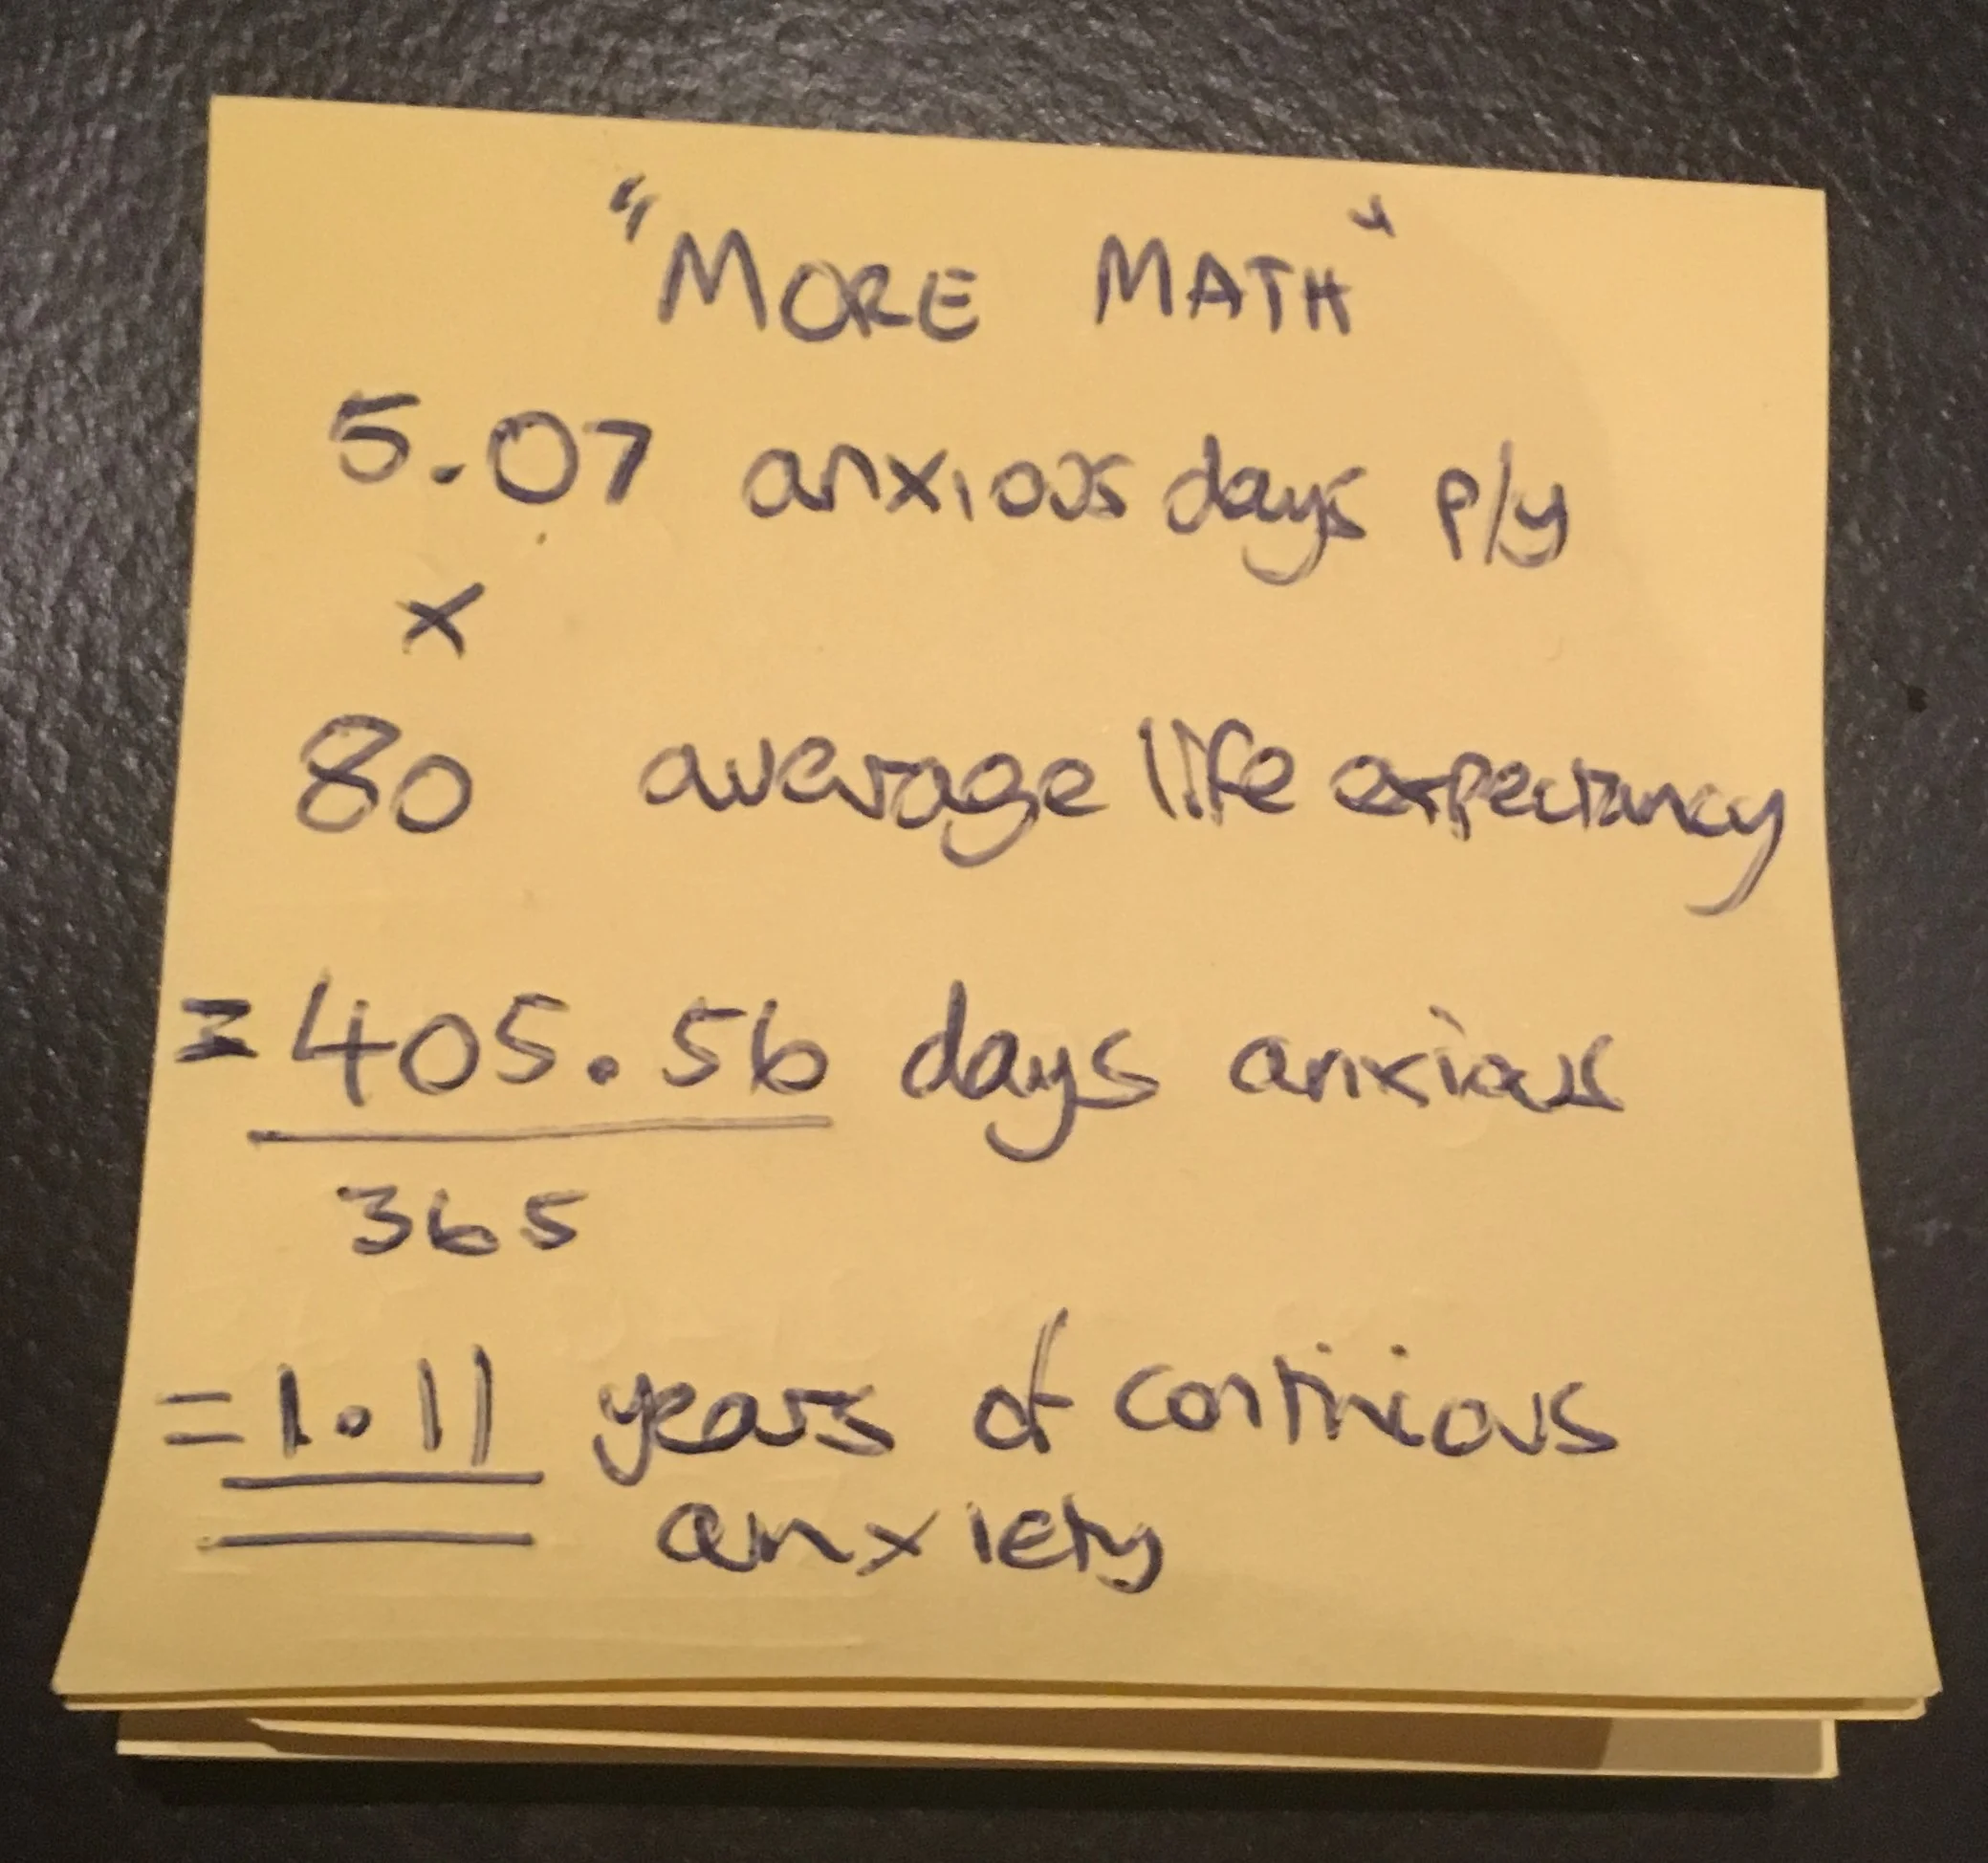 "MORE MATH"
5.07 anxious days p/y
×
80 average life expectancy
= 405.56 days anxious
365
= 1.11 years of continious
anxiety